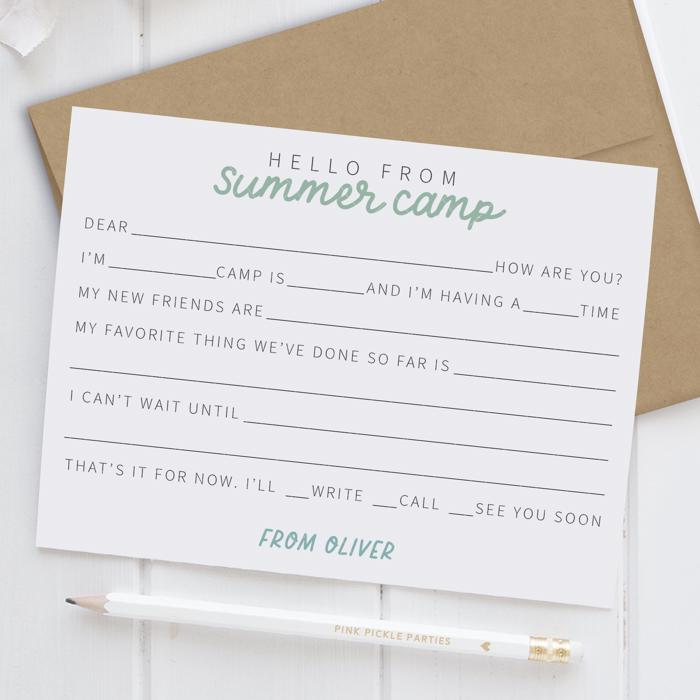 HELLO FROM
summer camp
DEAR_____HOW ARE YOU?
I'M_____CAMP IS_____AND I'M HAVING A_____TIME
MY NEW FRIENDS ARE_____
MY FAVORITE THING WE'VE DONE SO FAR IS_____
I CAN'T WAIT UNTIL_____
THAT'S IT FOR NOW. I'LL __WRITE __CALL __SEE YOU SOON
FROM OLIVER
PINK PICKLE PARTIES